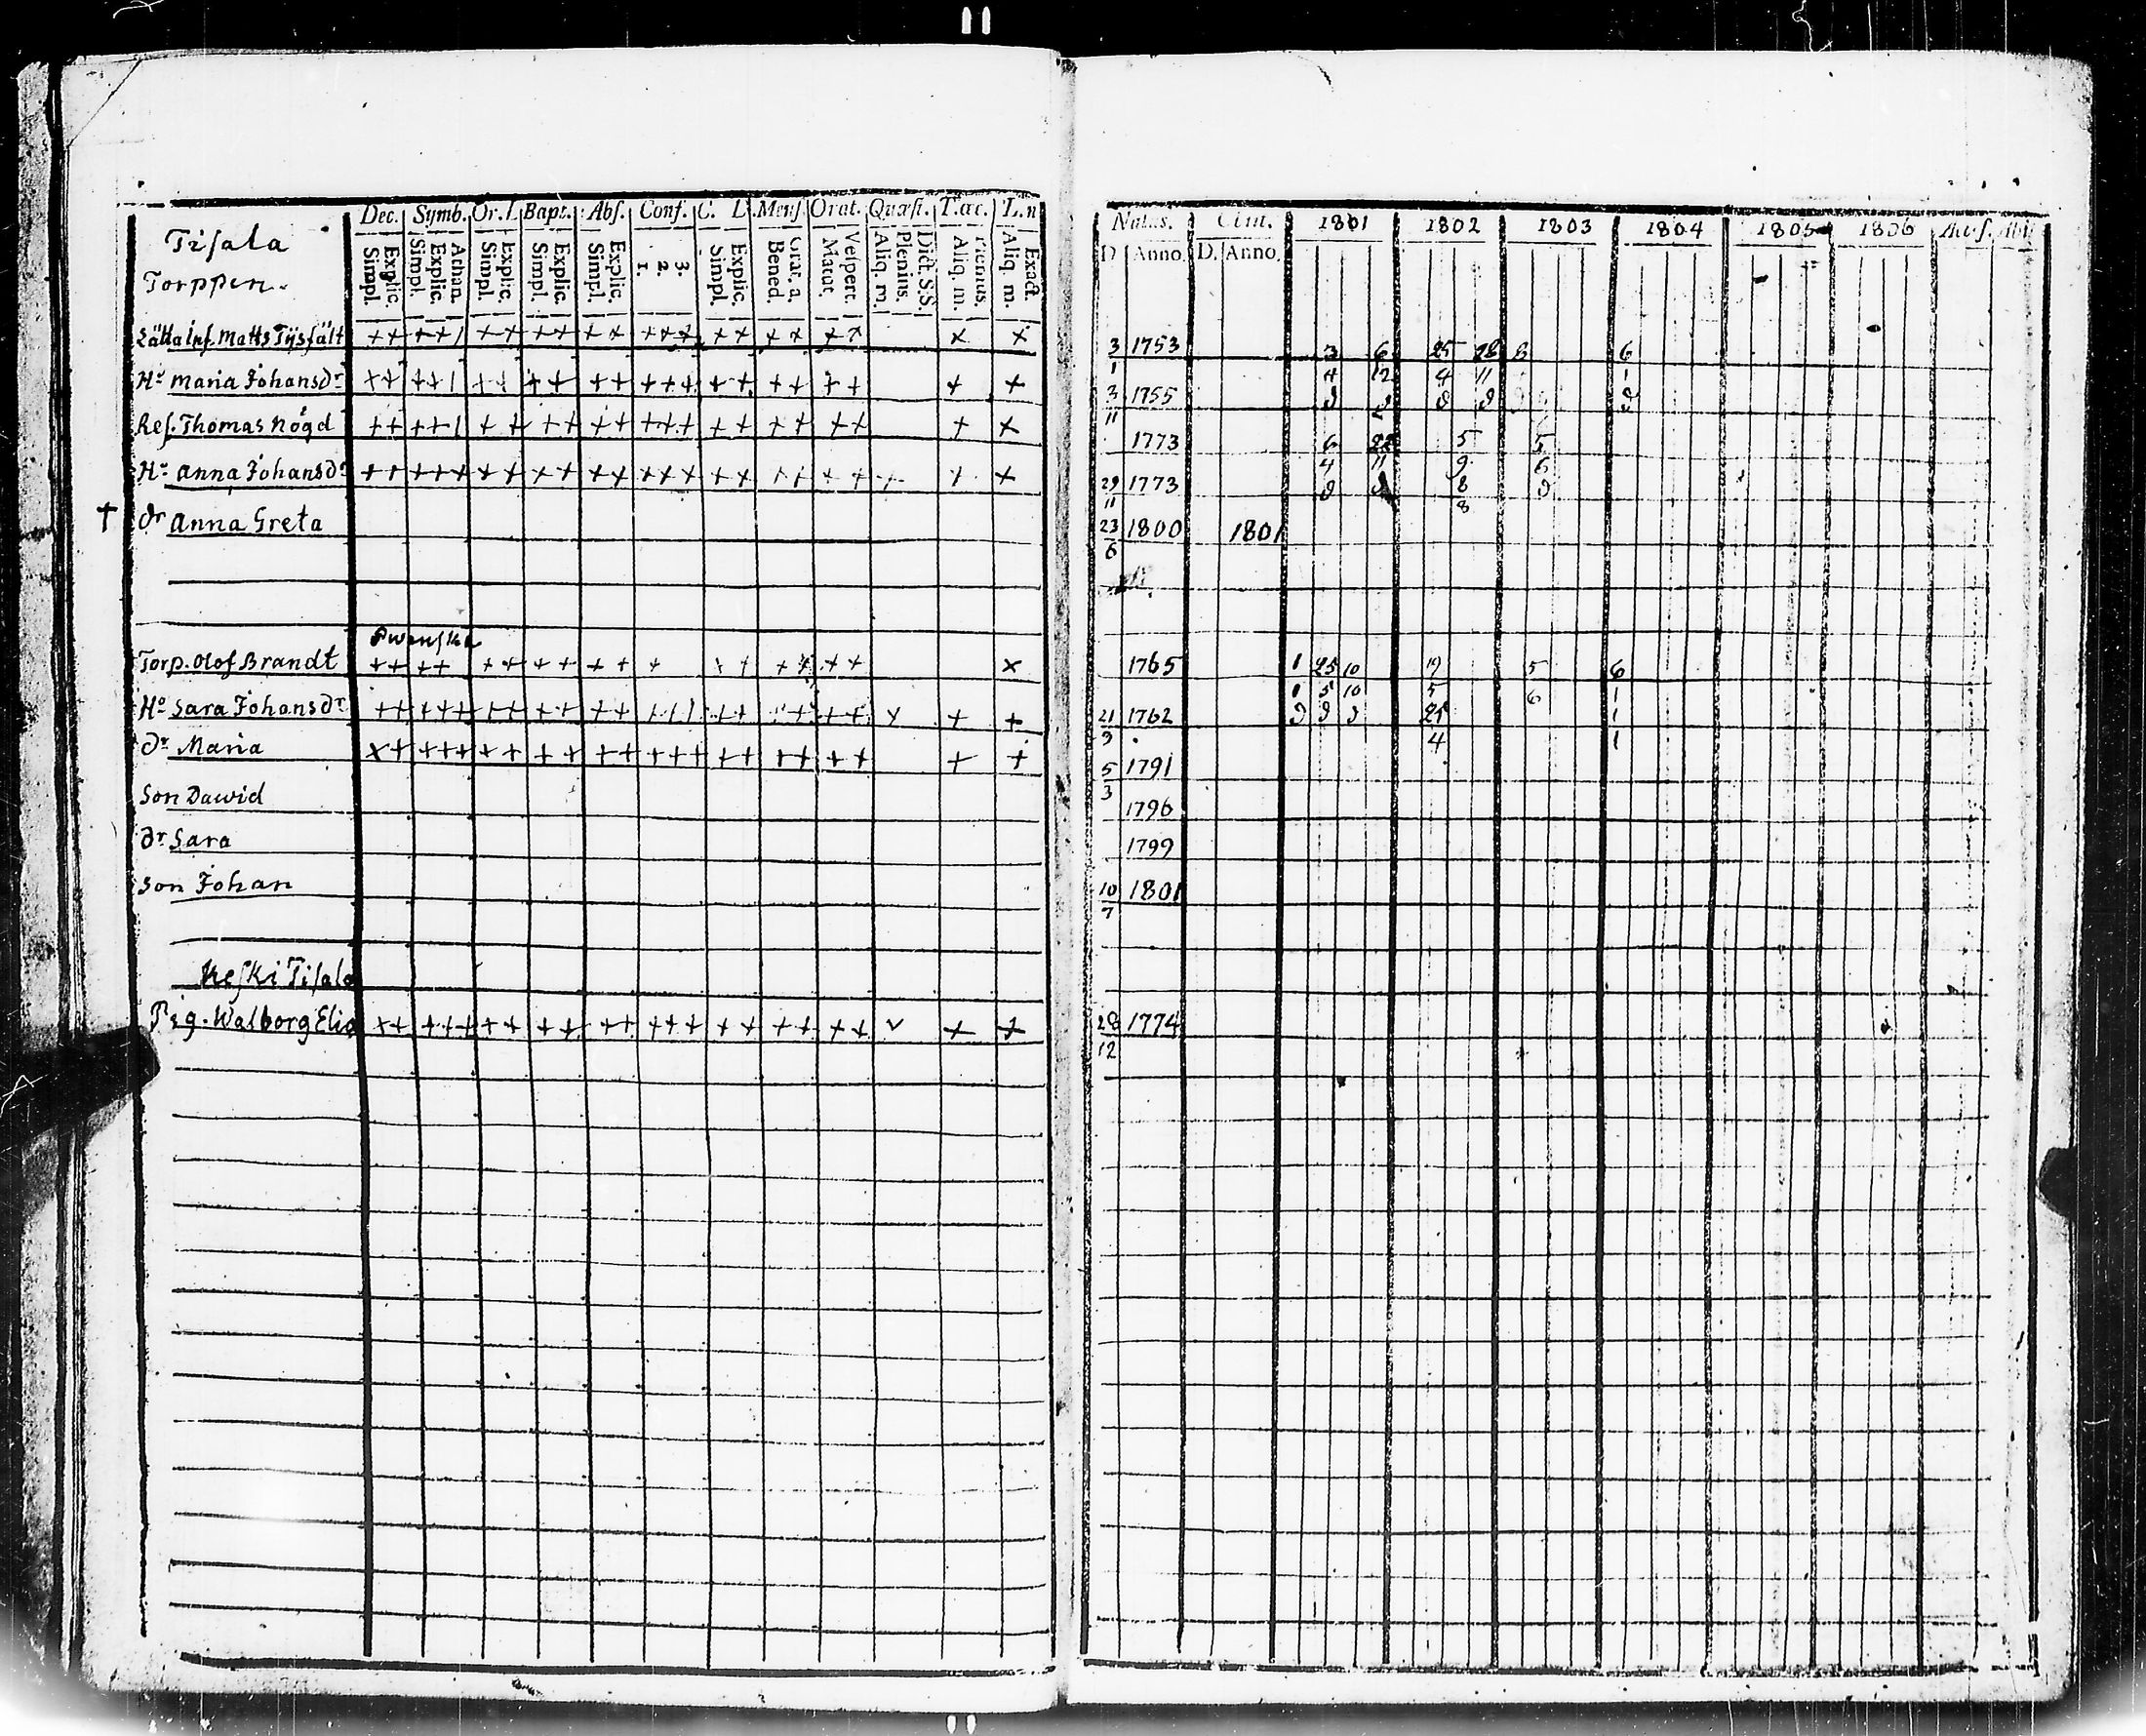 Dec. Symb. Or. D. Bapt. Abs. Conf. C. D. Mens. Orat. Quæst. T. œc. L. n
Tisala
Torppen.
Simpl. Explic. Simpl. Explic. Athan. Simpl. Explic. Simpl. Explic. Simpl. Explic. 1. 2. 3. Simpl. Explic. Bened. Grat. a. Matut. Vespert. Aliq. m. Plenius. Dict. S.S. Aliq. m. Plenius. Aliq. m. Exact.
Matts Tijsfält ++ ++1 ++ ++ ++ +++ ++ ++ ++ x x
Hu Maria Johansdr ++ ++1 ++ ++ ++ +++ ++ ++ ++ + +
Ref. Thomas Nögd ++ ++1 ++ ++ ++ +++ ++ ++ ++ + x
Hu Anna Johansdr ++ +++ ++ ++ ++ +++ ++ ++ ++ + + +
† dr Anna Greta
Swenska
Torp. Olof Brandt ++ ++ ++ ++ ++ + ++ ++ ++ x
Hu Sara Johansdr ++ +++ ++ ++ ++ ++1 ++ ++ ++ v + +
dr Maria ++ +++ ++ ++ ++ +++ ++ ++ ++ + +
Son Dawid
dr Sara
Son Johan
Keski Tisala
Pig. Walborg Elia ++ +++ ++ ++ ++ +++ ++ ++ ++ v + +
Natus. 1801 1802 1803 1804 1805 1806
D. Anno. D. Anno.
3 1753 3 6 25 28 8 6
1 4 12 4 11 1
3 1755 9 9 9 9 9
11
1773 6 22 5 5
4 11 9 6
29 1773 9 9 8 9
11 8
23 1800 1801
6
1765 1 25 10 19 5 6
1 5 10 5 6 1
21 1762 9 9 9 25 1
9 4 1
5 1791
3
1796
1799
10 1801
7
28 1774
12